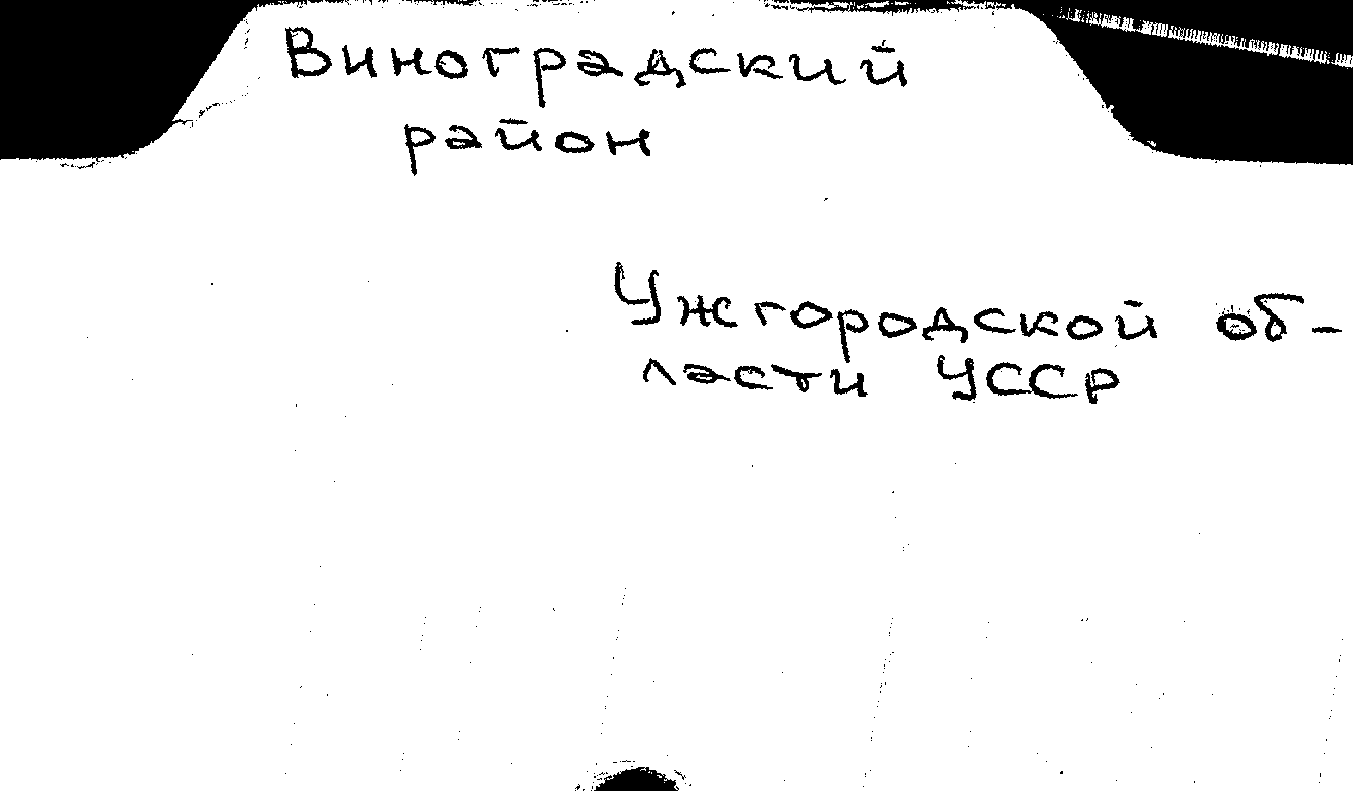 Виноградский
район
Ужгородской об-
ласти УССР